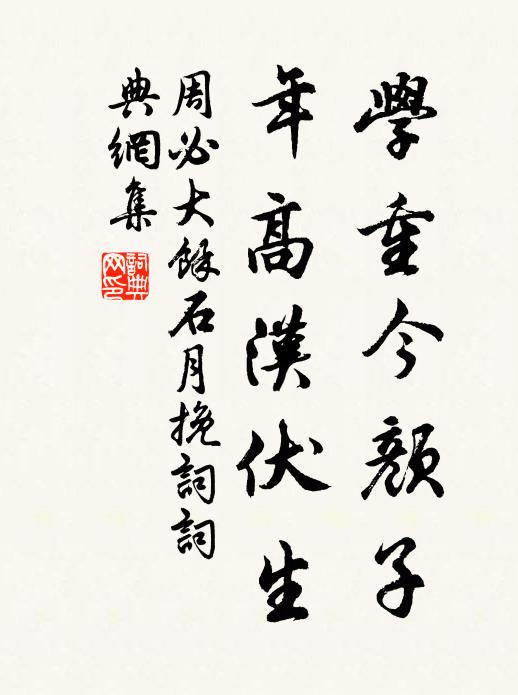 學重今顏子
年高漢伏生
周必大餘石月挽詞詞
典網集
詞典網印